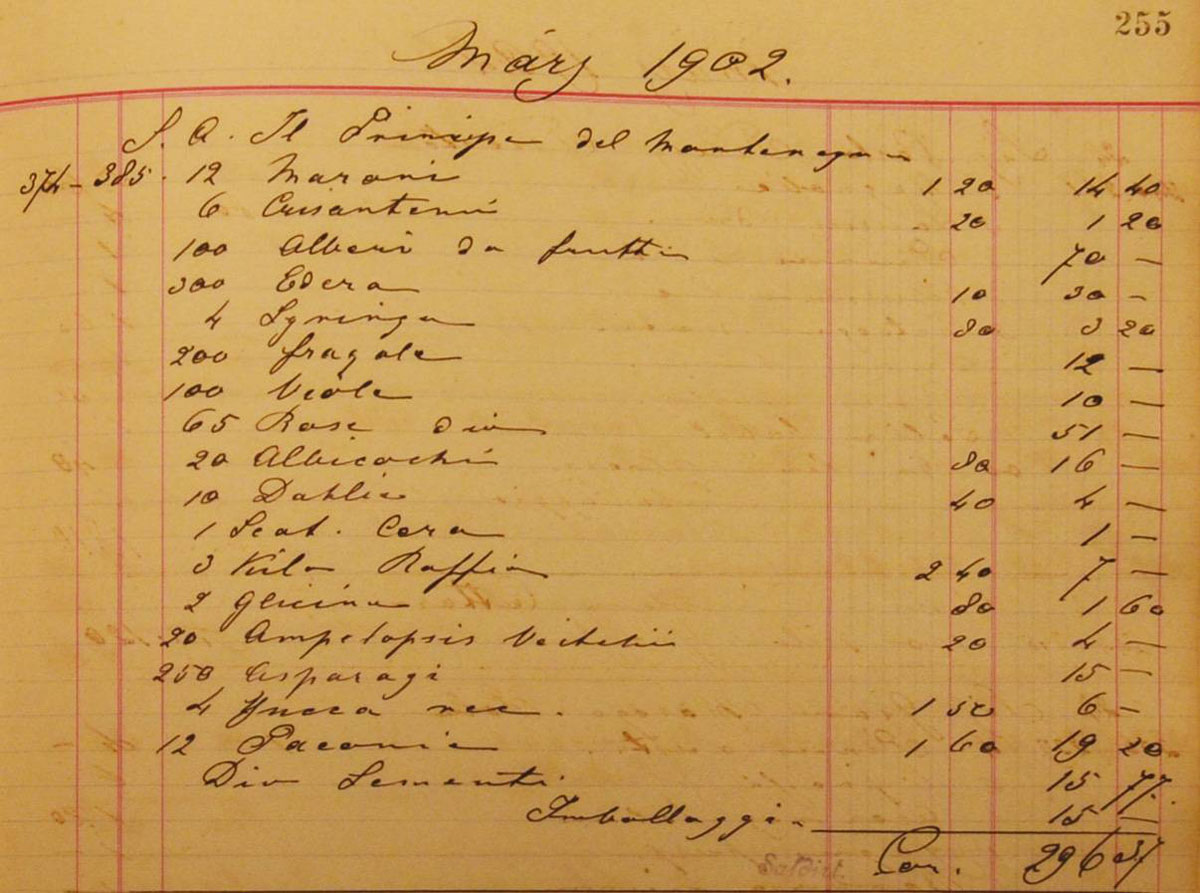 255
März 1902.
S. A. Il Principe del Montenegro
374 - 385. 12 Maroni 1 20 14 40
6 Crisantemi 20 1 20
100 Alberi da frutti 70 —
300 Edera 10 30 —
4 Syringa 80 3 20
200 fragole 12 —
100 Viole 10 —
65 Rose div 51 —
20 Albicochi 80 16 —
10 Dahlie 40 4 —
1 Scat. Cera 1 —
3 Kilo Raffia 2 40 7 —
2 Glicine 80 1 60
20 Ampelopsis Veitchii 20 4 —
250 Asparagi 15 —
4 Yucca rec. 1 50 6 —
12 Paeonie 1 60 19 20
Div Sementi 15 77
Imballaggio 15 —
Saldirt Cor. 296 37